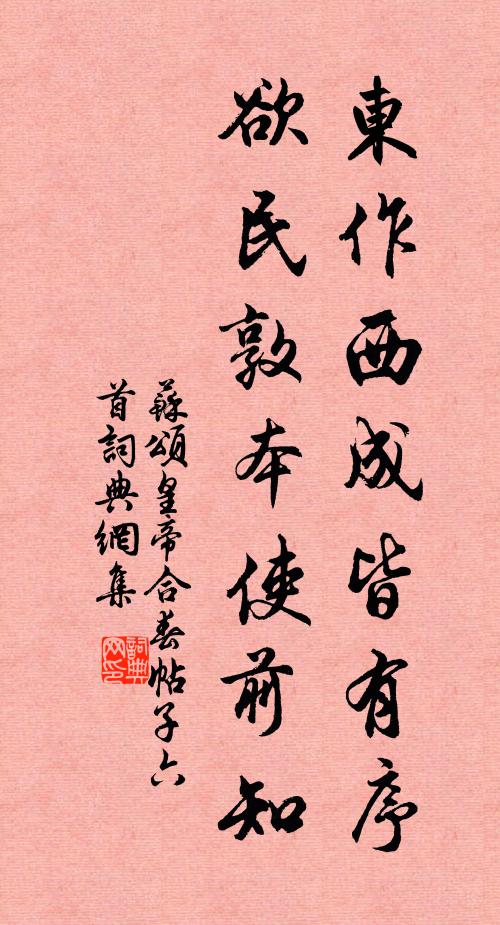 東作西成皆有序
欲民敦本使前知
蘇頌皇帝合春帖子六
首詞典網集
詞典
网印